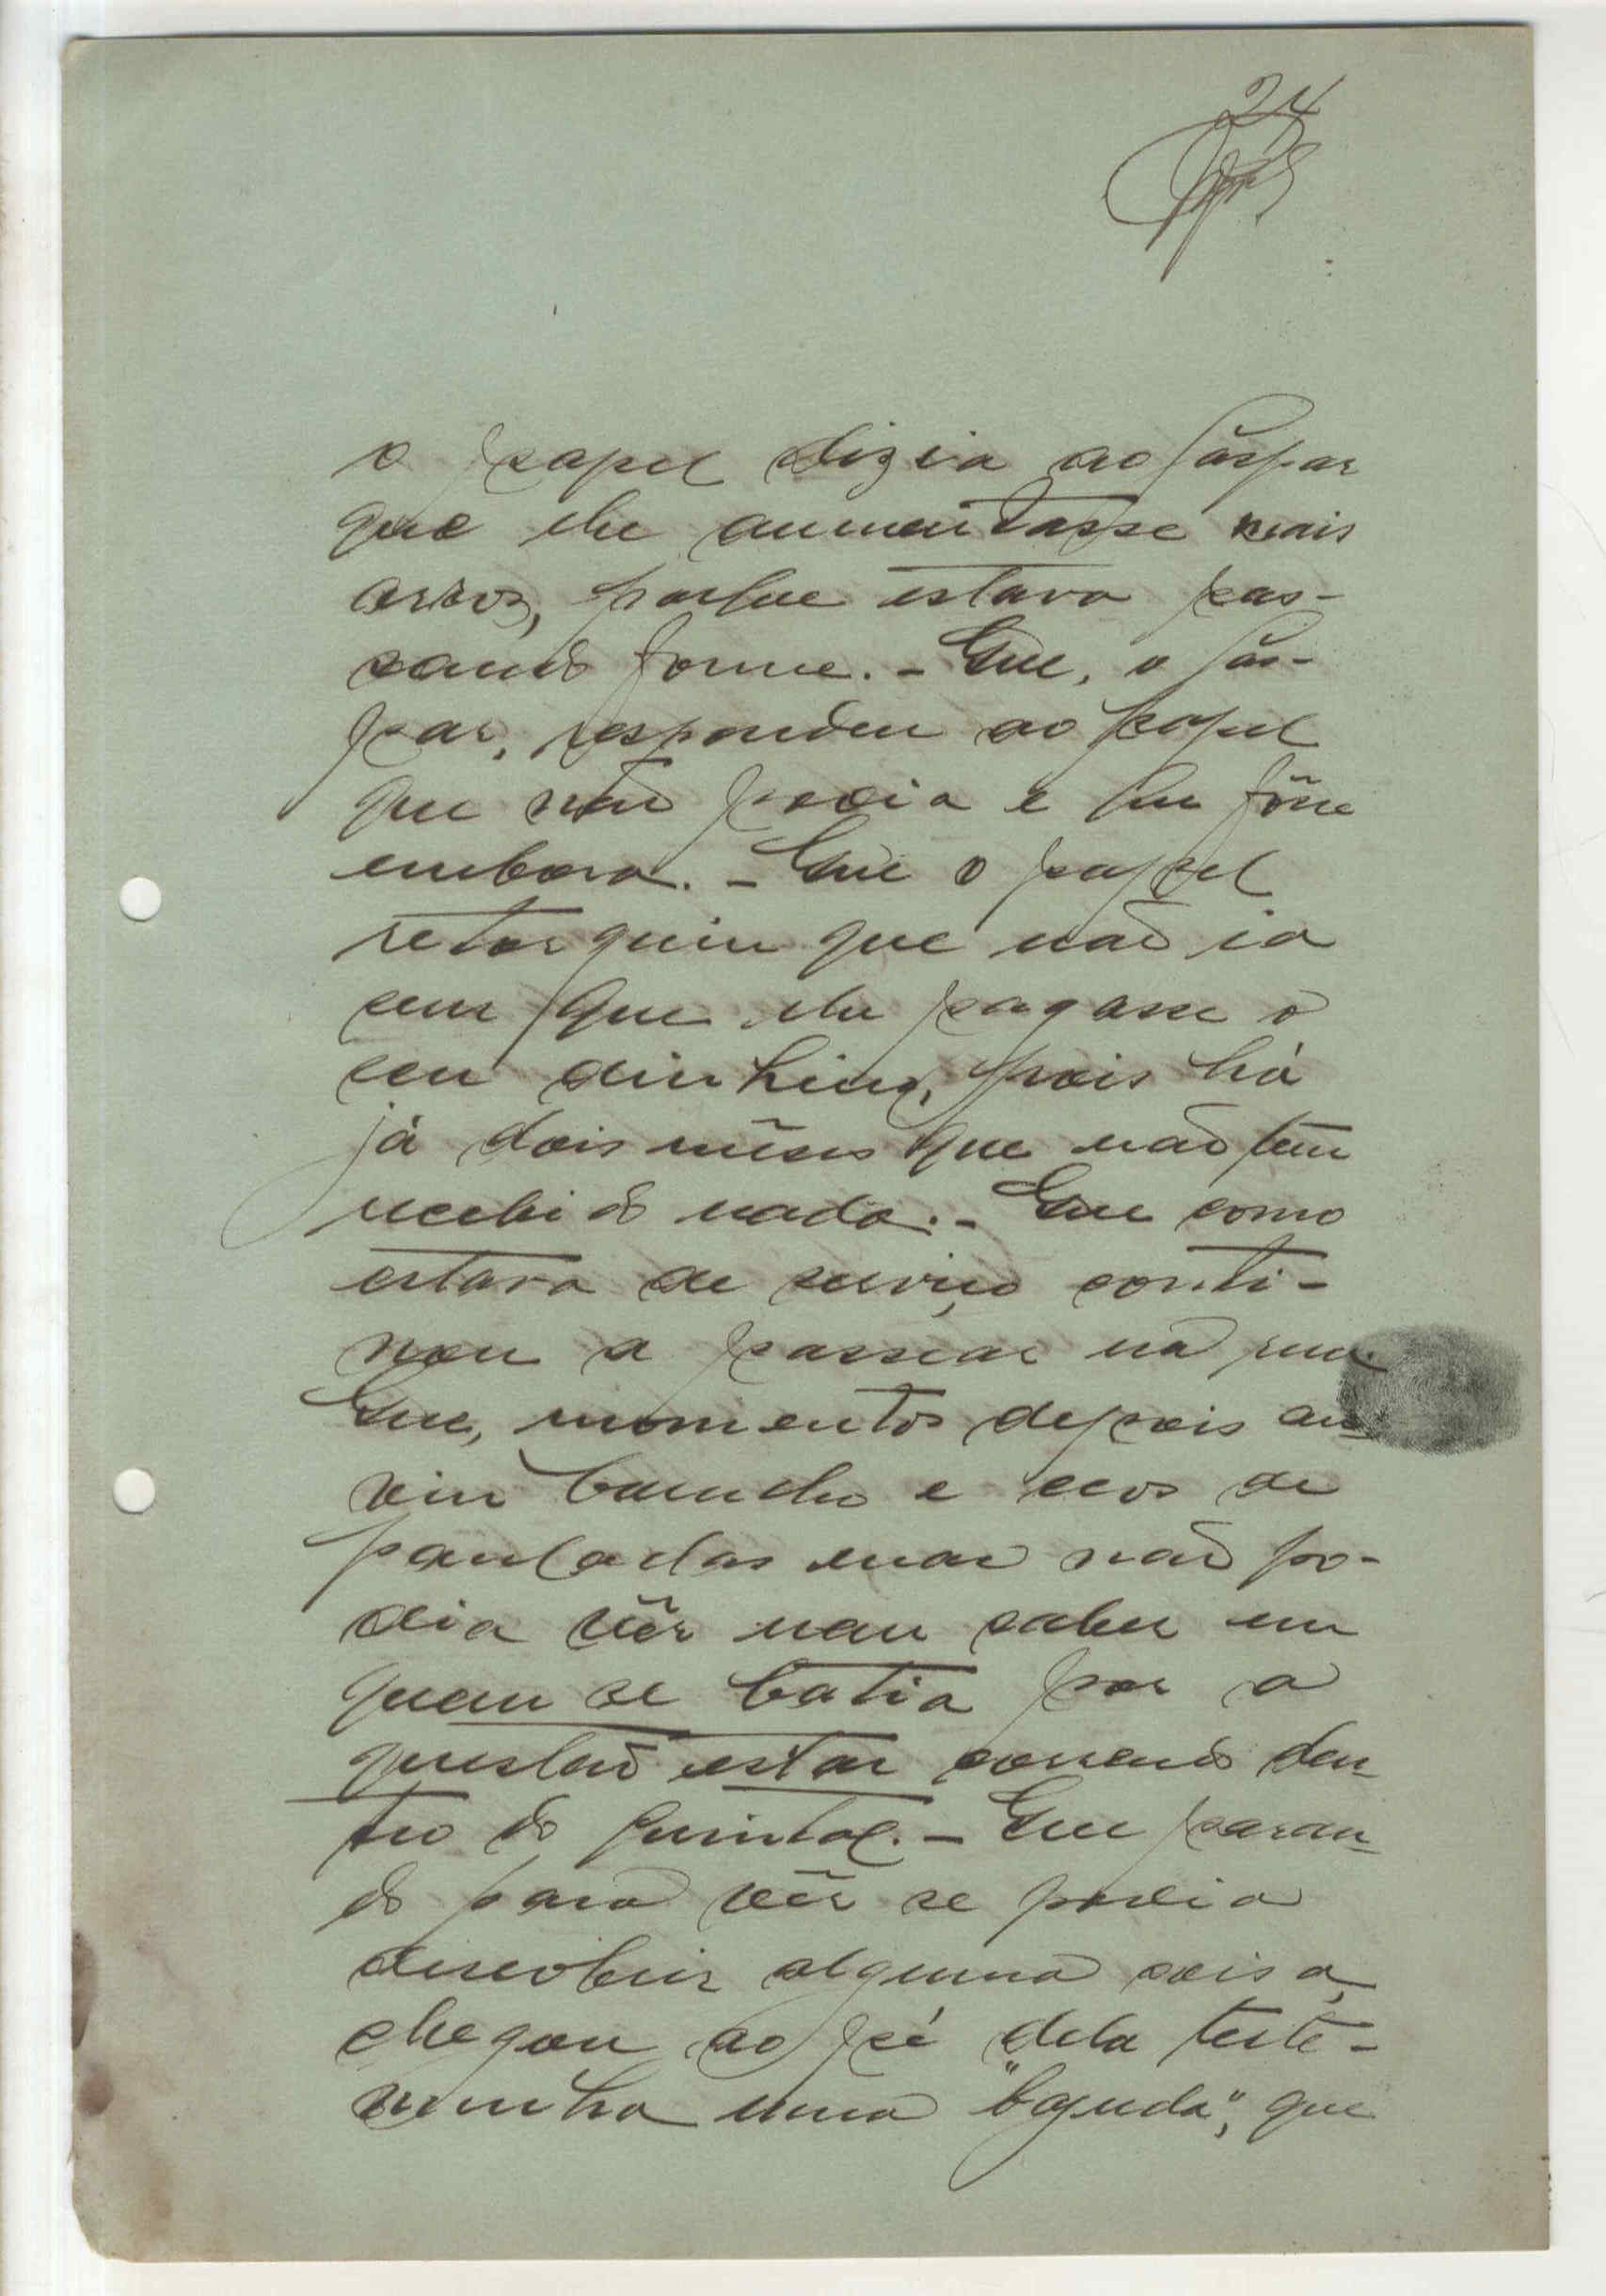 24
o papel dizia ao Gaspar
que lhe aumentasse mais
arroz, porque estava pas-
sando fome. - Que, o Gas-
par, respondeu ao papel
que não podia e que fôsse
embora. - Que o papel
retorquiu que não ia
sem que lhe pagasse o
seu dinheiro, pois há
já dois mêses que não tem
recebido nada. - Que como
estava de serviço conti-
nou a passear na rua.
Que, momentos depois ou-
viu barulho e ecos de
pauladas mas não po-
dia vêr nem saber em
quem se batia por a
questão estar correndo den-
tro do quintal. - Que paran-
do para vêr se podia
descobrir alguma coisa,
chegou ao pé dela teste-
munha uma "bajuda", que